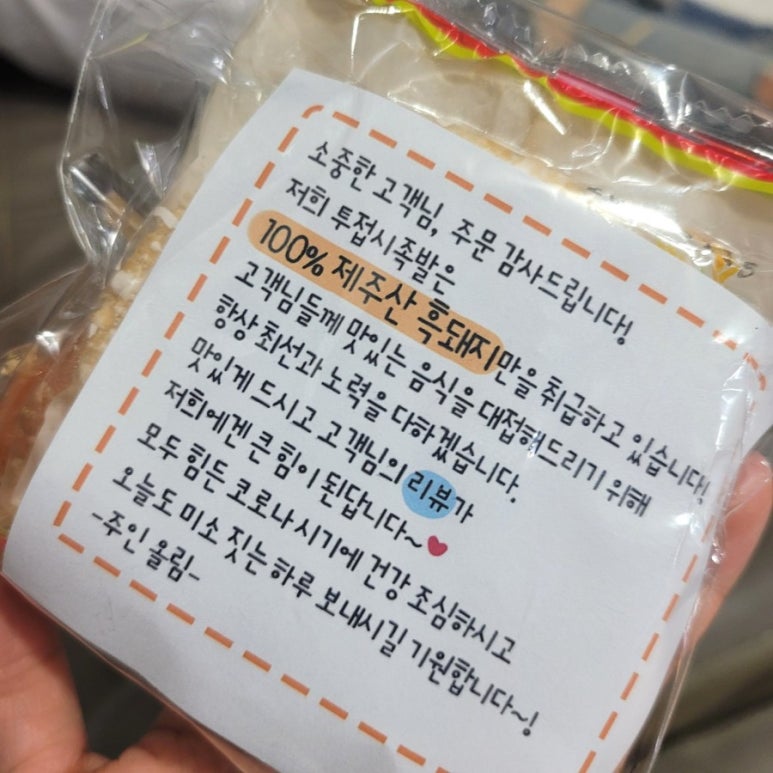 소중한 고객님, 주문 감사드립니다!
저희 투접시족발은
100% 제주산 흑돼지만을 취급하고 있습니다!
고객님들께 맛있는 음식을 대접해드리기 위해
항상 최선과 노력을 다하겠습니다.
맛있게 드시고 고객님의 리뷰가
저희에겐 큰 힘이 된답니다~
모두 힘든 코로나 시기에 건강 조심하시고
오늘도 미소 짓는 하루 보내시길 기원합니다~!
-주인 올림-